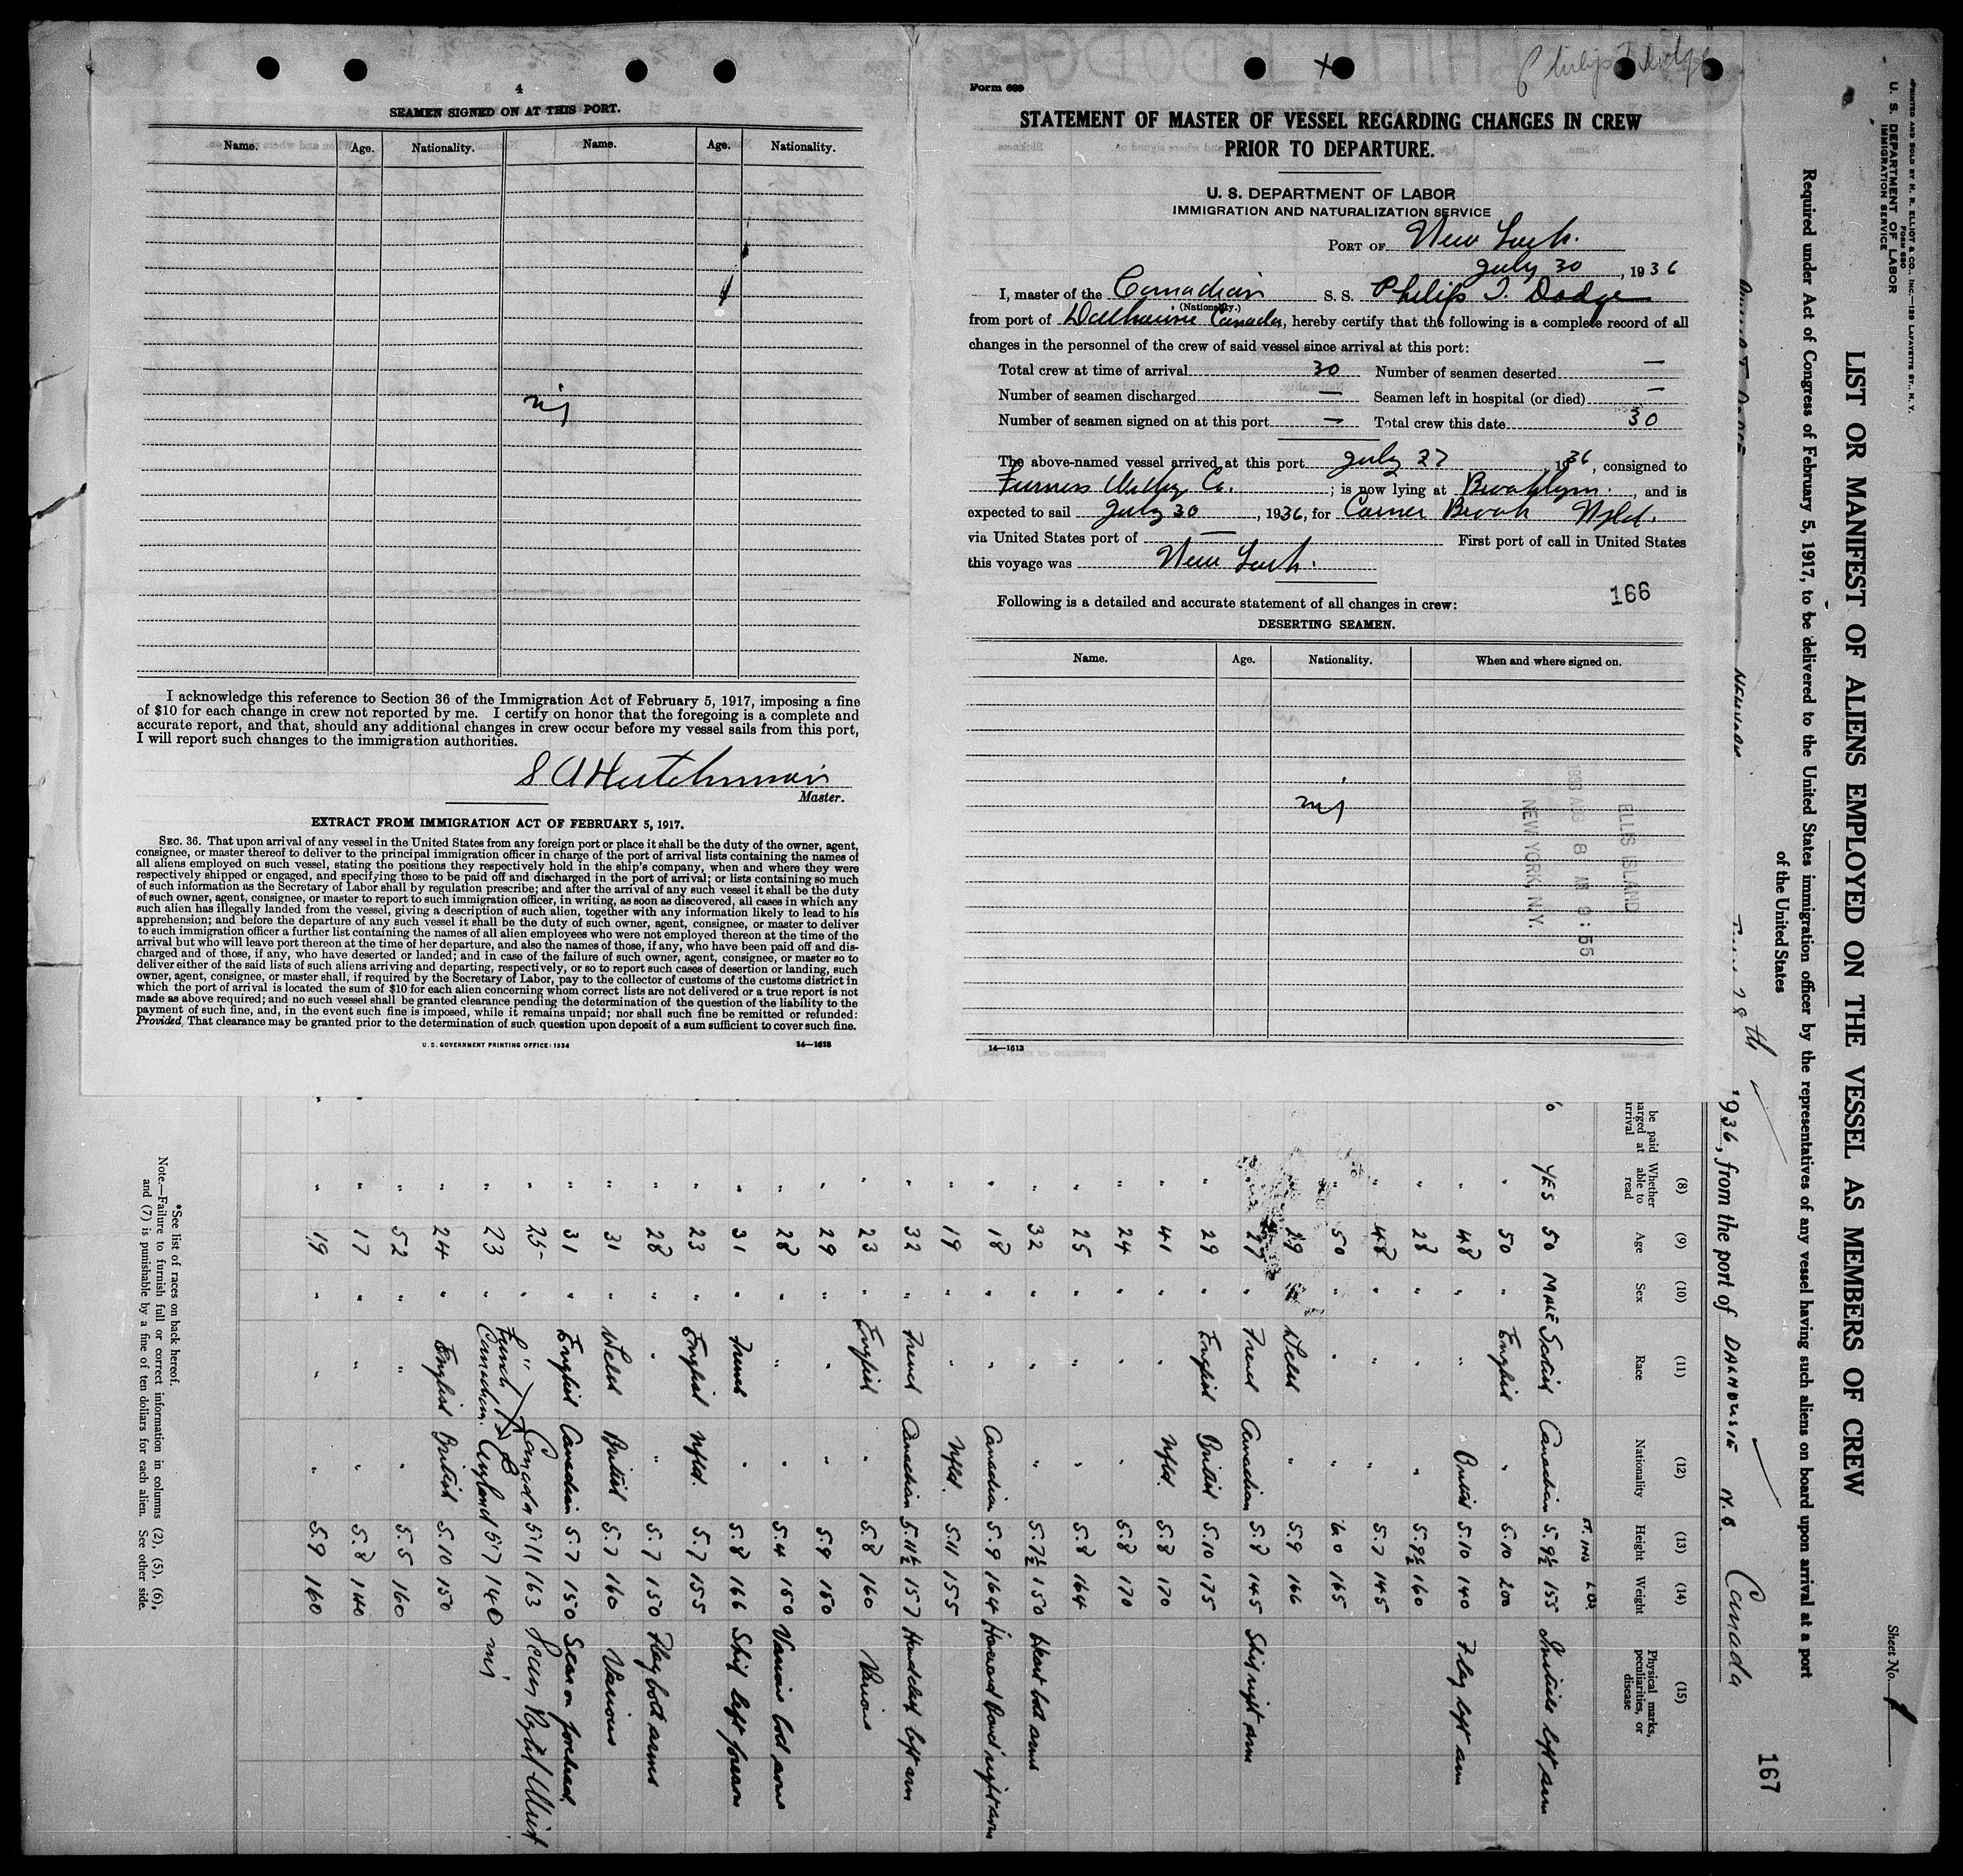 4
SEAMEN SIGNED ON AT THIS PORT.
Name. Age. Nationality. Name. Age. Nationality.
nil
I acknowledge this reference to Section 36 of the Immigration Act of February 5, 1917, imposing a fine
of $10 for each change in crew not reported by me. I certify on honor that the foregoing is a complete and
accurate report, and that, should any additional changes in crew occur before my vessel sails from this port,
I will report such changes to the immigration authorities.
Master.
EXTRACT FROM IMMIGRATION ACT OF FEBRUARY 5, 1917.
SEC. 36. That upon arrival of any vessel in the United States from any foreign port or place it shall be the duty of the owner, agent,
consignee, or master thereof to deliver to the principal immigration officer in charge of the port of arrival lists containing the names of
all aliens employed on such vessel, stating the positions they respectively hold in the ship's company, when and where they were
respectively shipped or engaged, and specifying those to be paid off and discharged in the port of arrival; or lists containing so much
of such information as the Secretary of Labor shall by regulation prescribe; and after the arrival of any such vessel it shall be the duty
of such owner, agent, consignee, or master to report to such immigration officer, in writing, as soon as discovered, all cases in which any
such alien has illegally landed from the vessel, giving a description of such alien, together with any information likely to lead to his
apprehension; and before the departure of any such vessel it shall be the duty of such owner, agent, consignee, or master to deliver
to such immigration officer a further list containing the names of all alien employees who were not employed thereon at the time of the
arrival but who will leave port thereon at the time of her departure, and also the names of those, if any, who have been paid off and dis-
charged and of those, if any, who have deserted or landed; and in case of the failure of such owner, agent, consignee, or master so to
deliver either of the said lists of such aliens arriving and departing, respectively, or so to report such cases of desertion or landing, such
owner, agent, consignee, or master shall, if required by the Secretary of Labor, pay to the collector of customs of the customs district in
which the port of arrival is located the sum of $10 for each alien concerning whom correct lists are not delivered or a true report is not
made as above required; and no such vessel shall be granted clearance pending the determination of the question of the liability to the
payment of such fine, and, in the event such fine is imposed, while it remains unpaid; nor shall such fine be remitted or refunded:
Provided, That clearance may be granted prior to the determination of such question upon deposit of a sum sufficient to cover such fine.
U. S. GOVERNMENT PRINTING OFFICE: 1934 14—1613
Philip T Dodge
Form 689
STATEMENT OF MASTER OF VESSEL REGARDING CHANGES IN CREW
PRIOR TO DEPARTURE.
U. S. DEPARTMENT OF LABOR
IMMIGRATION AND NATURALIZATION SERVICE
PORT OF New York.
July 30, 1936
I, master of the Canadian S. S. Philip T. Dodge
(Nationality.)
from port of Dalhousie Canada, hereby certify that the following is a complete record of all
changes in the personnel of the crew of said vessel since arrival at this port:
Total crew at time of arrival 30 Number of seamen deserted —
Number of seamen discharged — Seamen left in hospital (or died) —
Number of seamen signed on at this port — Total crew this date 30
The above-named vessel arrived at this port July 27 1936, consigned to
Furness Withy Co.; is now lying at Brooklyn., and is
expected to sail July 30, 1936, for Corner Brook Nfld.
via United States port of — First port of call in United States
this voyage was New York.
166
Following is a detailed and accurate statement of all changes in crew:
DESERTING SEAMEN.
Name. Age. Nationality. When and where signed on.
nil
ELLIS ISLAND
NEW YORK, N.Y.
14—1613
PRINTED AND SOLD BY H. R. ELLIOT & CO., INC.—129 LAFAYETTE ST., N. Y.
FORM 680
U. S. DEPARTMENT OF LABOR
IMMIGRATION SERVICE
Sheet No. 1
LIST OR MANIFEST OF ALIENS EMPLOYED ON THE VESSEL AS MEMBERS OF CREW
Required under Act of Congress of February 5, 1917, to be delivered to the United States immigration officer by the representatives of any vessel having such aliens on board upon arrival at a port
of the United States
167
28th 1936, from the port of DALHOUSIE N.B. Canada
be paid
arged at
arrival
(8) Whether able to read (9) Age (10) Sex (11) Race (12) Nationality (13) Height (14) Weight (15) Physical marks, peculiarities, or disease
FT. INS LBS.
YES 50 MALE Scotch Canadian 5.9½ 155 Initials left arm
" 50 " English " 5.10 200
" 48 " " British 5.10 140 Flag left arm
" 28 " " " 5.9½ 160
" 48 " " " 5.7 145
" 50 " " " 6.0 165
" 29 " Welsh " 5.9 166
" 27 " French Canadian 5.8 145 Ship right arm
" 29 " English British 5.10 175
" 41 " " Nfld. 5.8 170
" 24 " " " 5.8 170
" 25 " " " 5.8 164
" 32 " " " 5.7½ 150 Heart both arms
" 18 " " Canadian 5.9 164 right arm
" 19 " " Nfld. 5.11 155
" 32 " French Canadian 5.11½ 157 left arm
" 23 " English " 5.8 160 Various
" 29 " " " 5.9 150
" 28 " " " 5.4 150 Various both arms
" 31 " French " 5.8 166 Ship left forearm
" 23 " English Nfld. 5.7 155
" 28 " " " 5.7 150 Flag both arms
" 31 " Welsh British 5.7 160 Various
" 31 " English Canadian 5.7 150 Scar on forehead
" 25 " " Canada 5'11 163 Scar Right Wrist
" 23 " French Canadian England 5'7 140 nil
" 24 " English British 5.10 150
" 52 " " " 5.5 160
" 17 " " " 5.8 140
" 19 " " " 5.9 160
*See list of races on back hereof.
Note.—Failure to furnish full or correct information in columns (2), (5), (6),
and (7) is punishable by a fine of ten dollars for each alien. See other side.